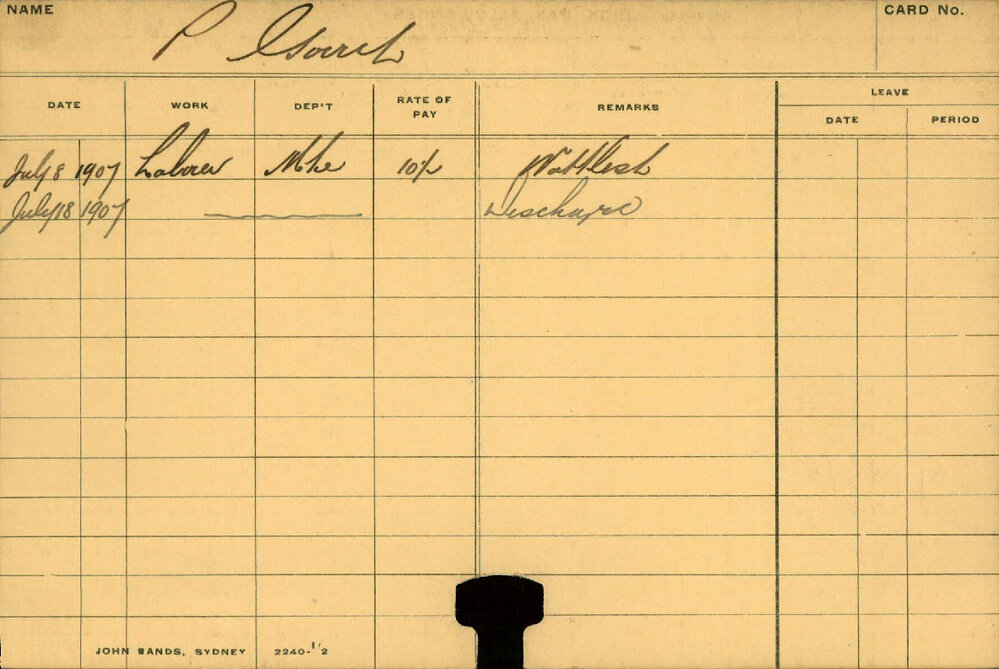 NAME
P
CARD No.
DATE WORK DEP'T RATE OF PAY REMARKS LEAVE
DATE PERIOD
July 8 1907 Laborer Mtce 10/-
July 18 1907 Discharge
JOHN SANDS, SYDNEY 2240-1/2